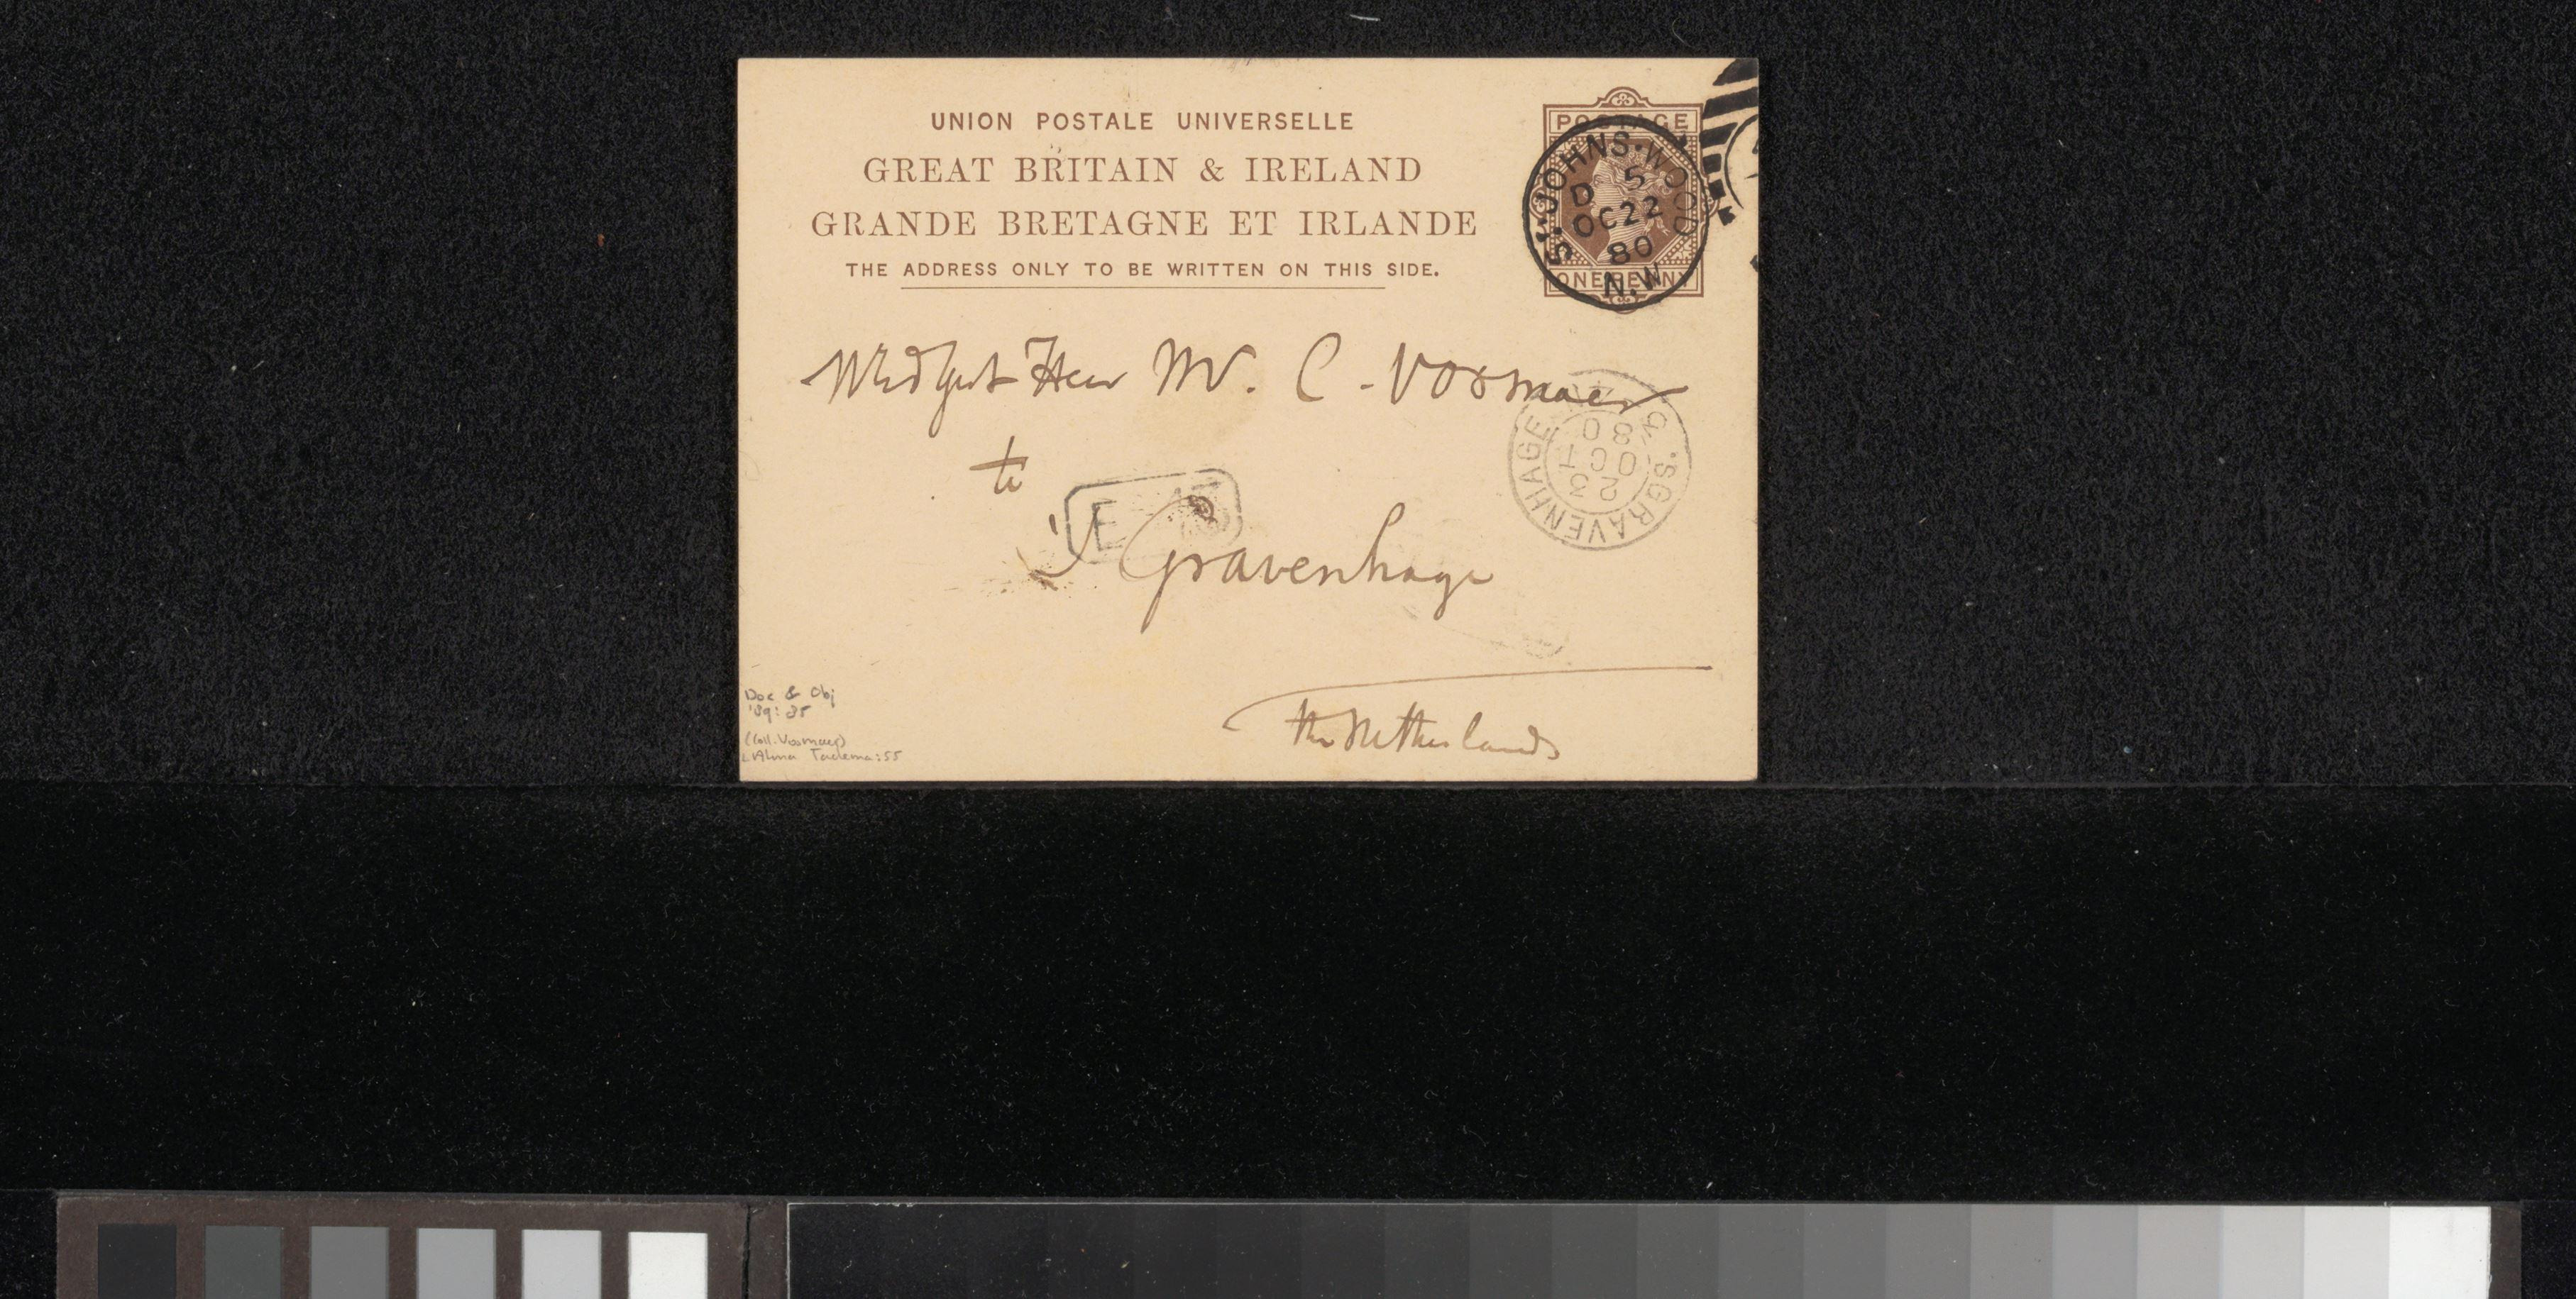 UNION POSTALE UNIVERSELLE
GREAT BRITAIN & IRELAND
GRANDE BRETAGNE ET IRLANDE
THE ADDRESS ONLY TO BE WRITTEN ON THIS SIDE.
POSTAGE
ONE PENNY
ST. JOHNS. WOOD
D 5
OC 22
80
N.W
WEdGest Heer Mr. C. Vosmaer
te
's Gravenhage
'SGRAVENHAGE
23
OCT
80
E
the Netherlands
Doc & Obj
'89: 35
(Coll. Vosmaer)
L Alma Tadema: 55